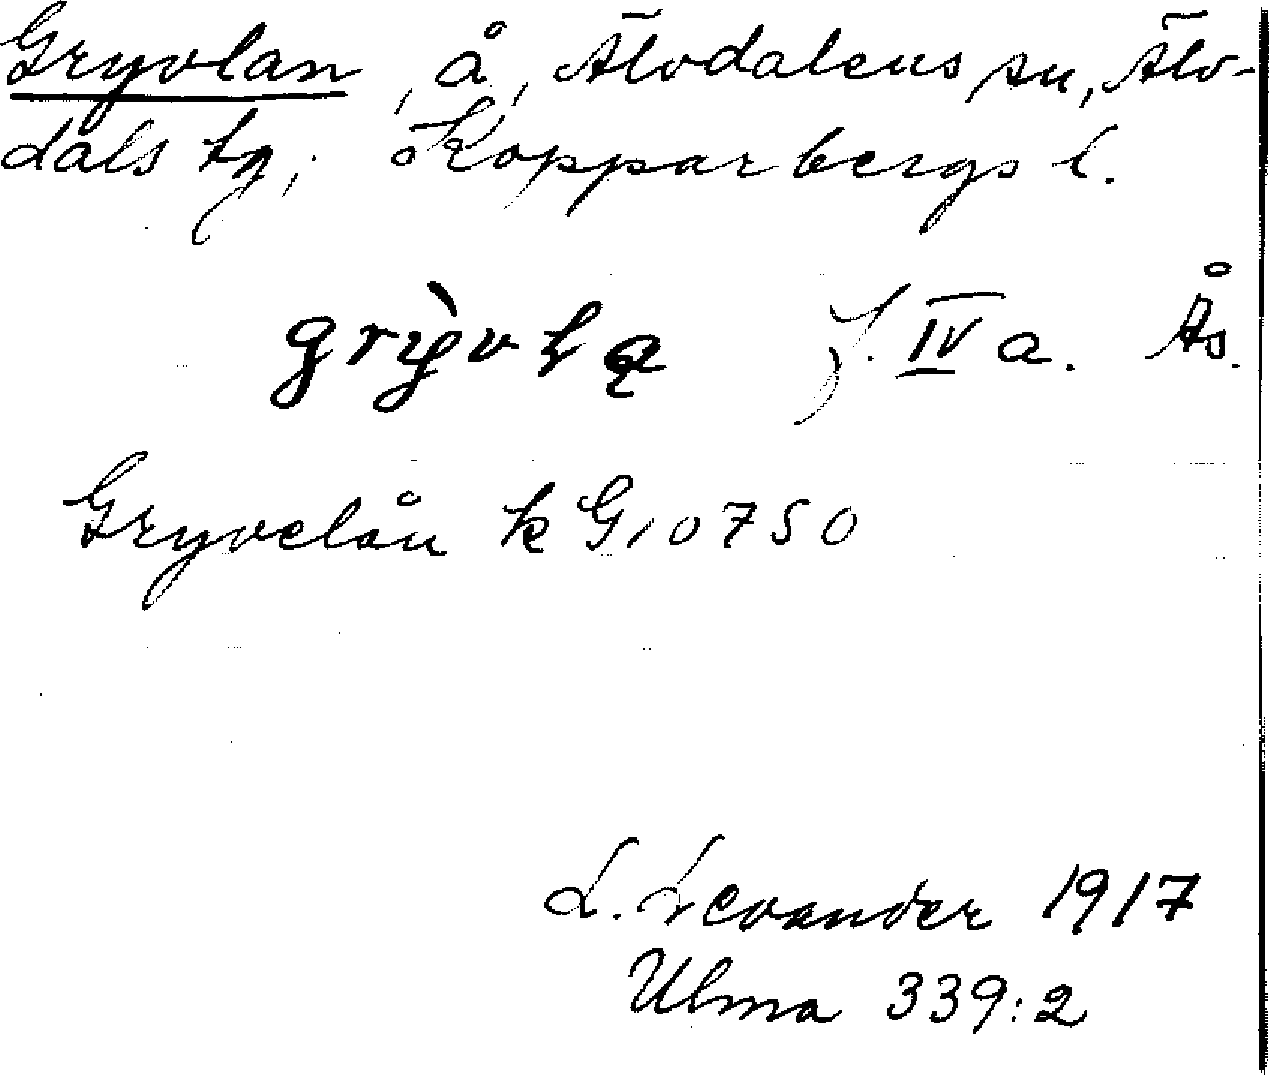 Gryvlan, å, Älvdalens sn, Älv-
dals tg, Kopparbergs l.
grỳvłą f. IV a. Ås.
Gryvelån k G 10750
L. Levander 1917
Ulma 339:2